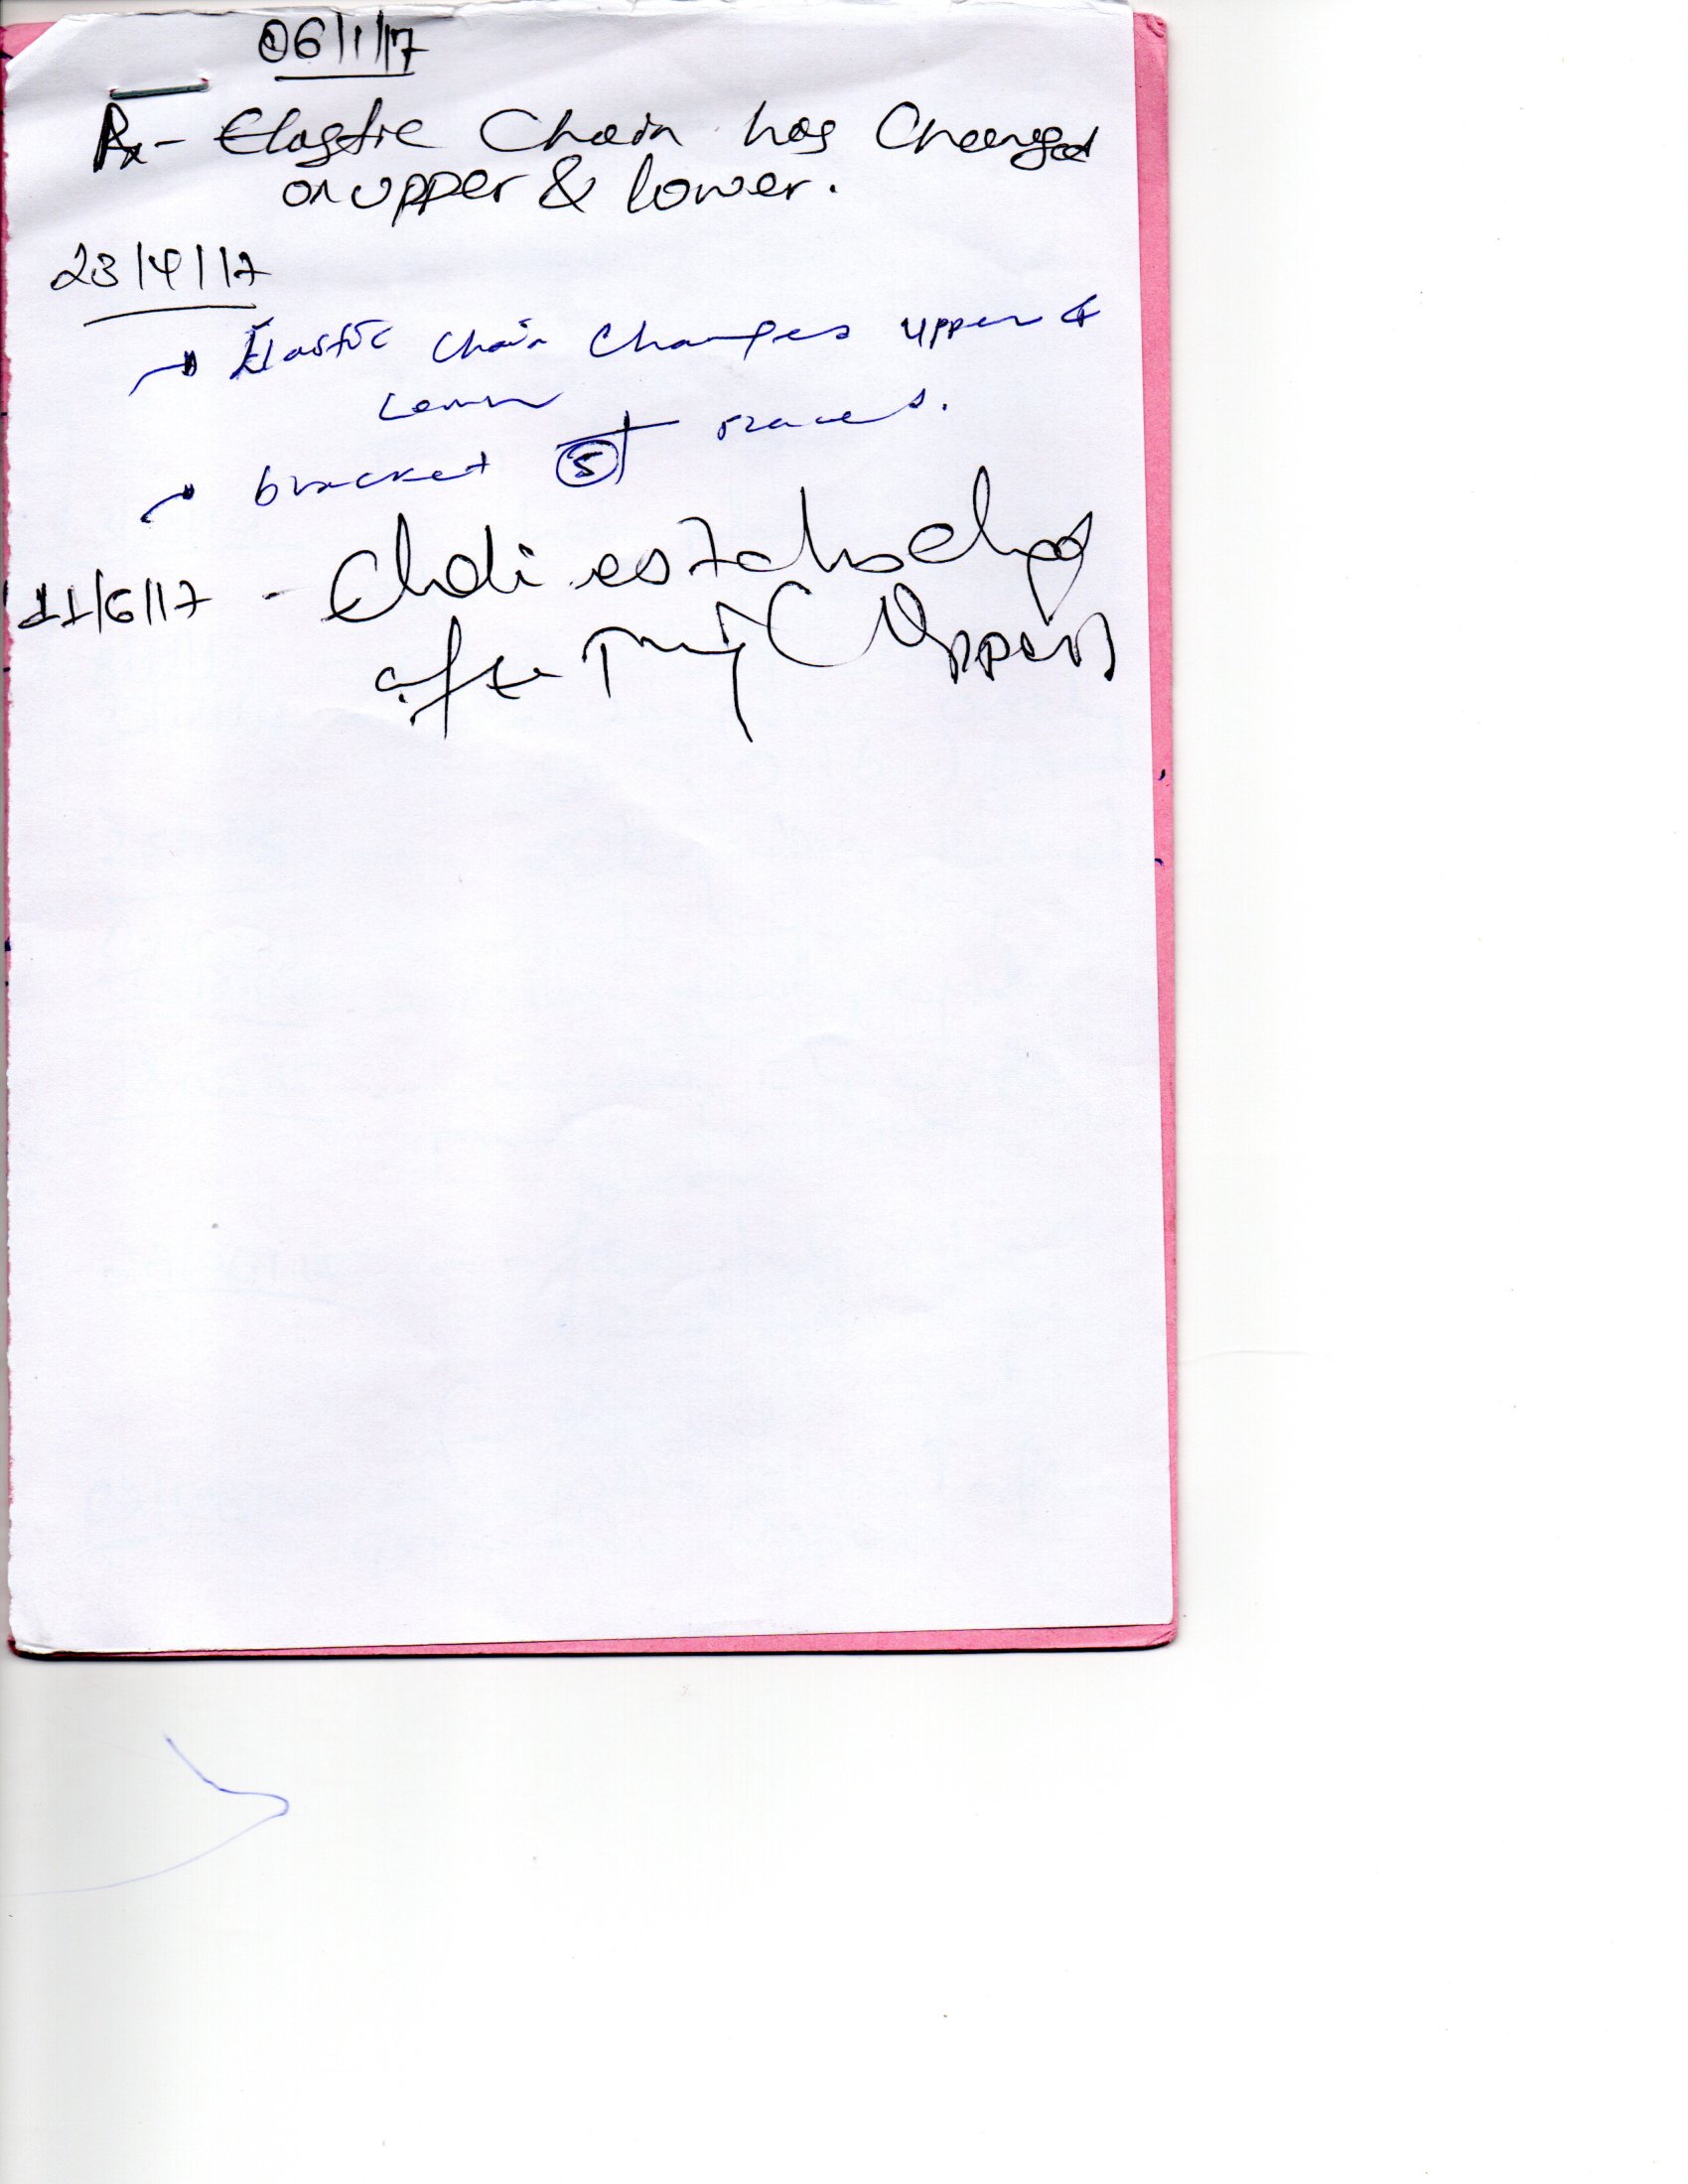 06/1/17
Rx - Elastic Chain has Changed
on upper & lower.
23/4/17
→ Elastic chain changes upper &
Lower
→ bracket 5
11/6/17 -
after (Upper)